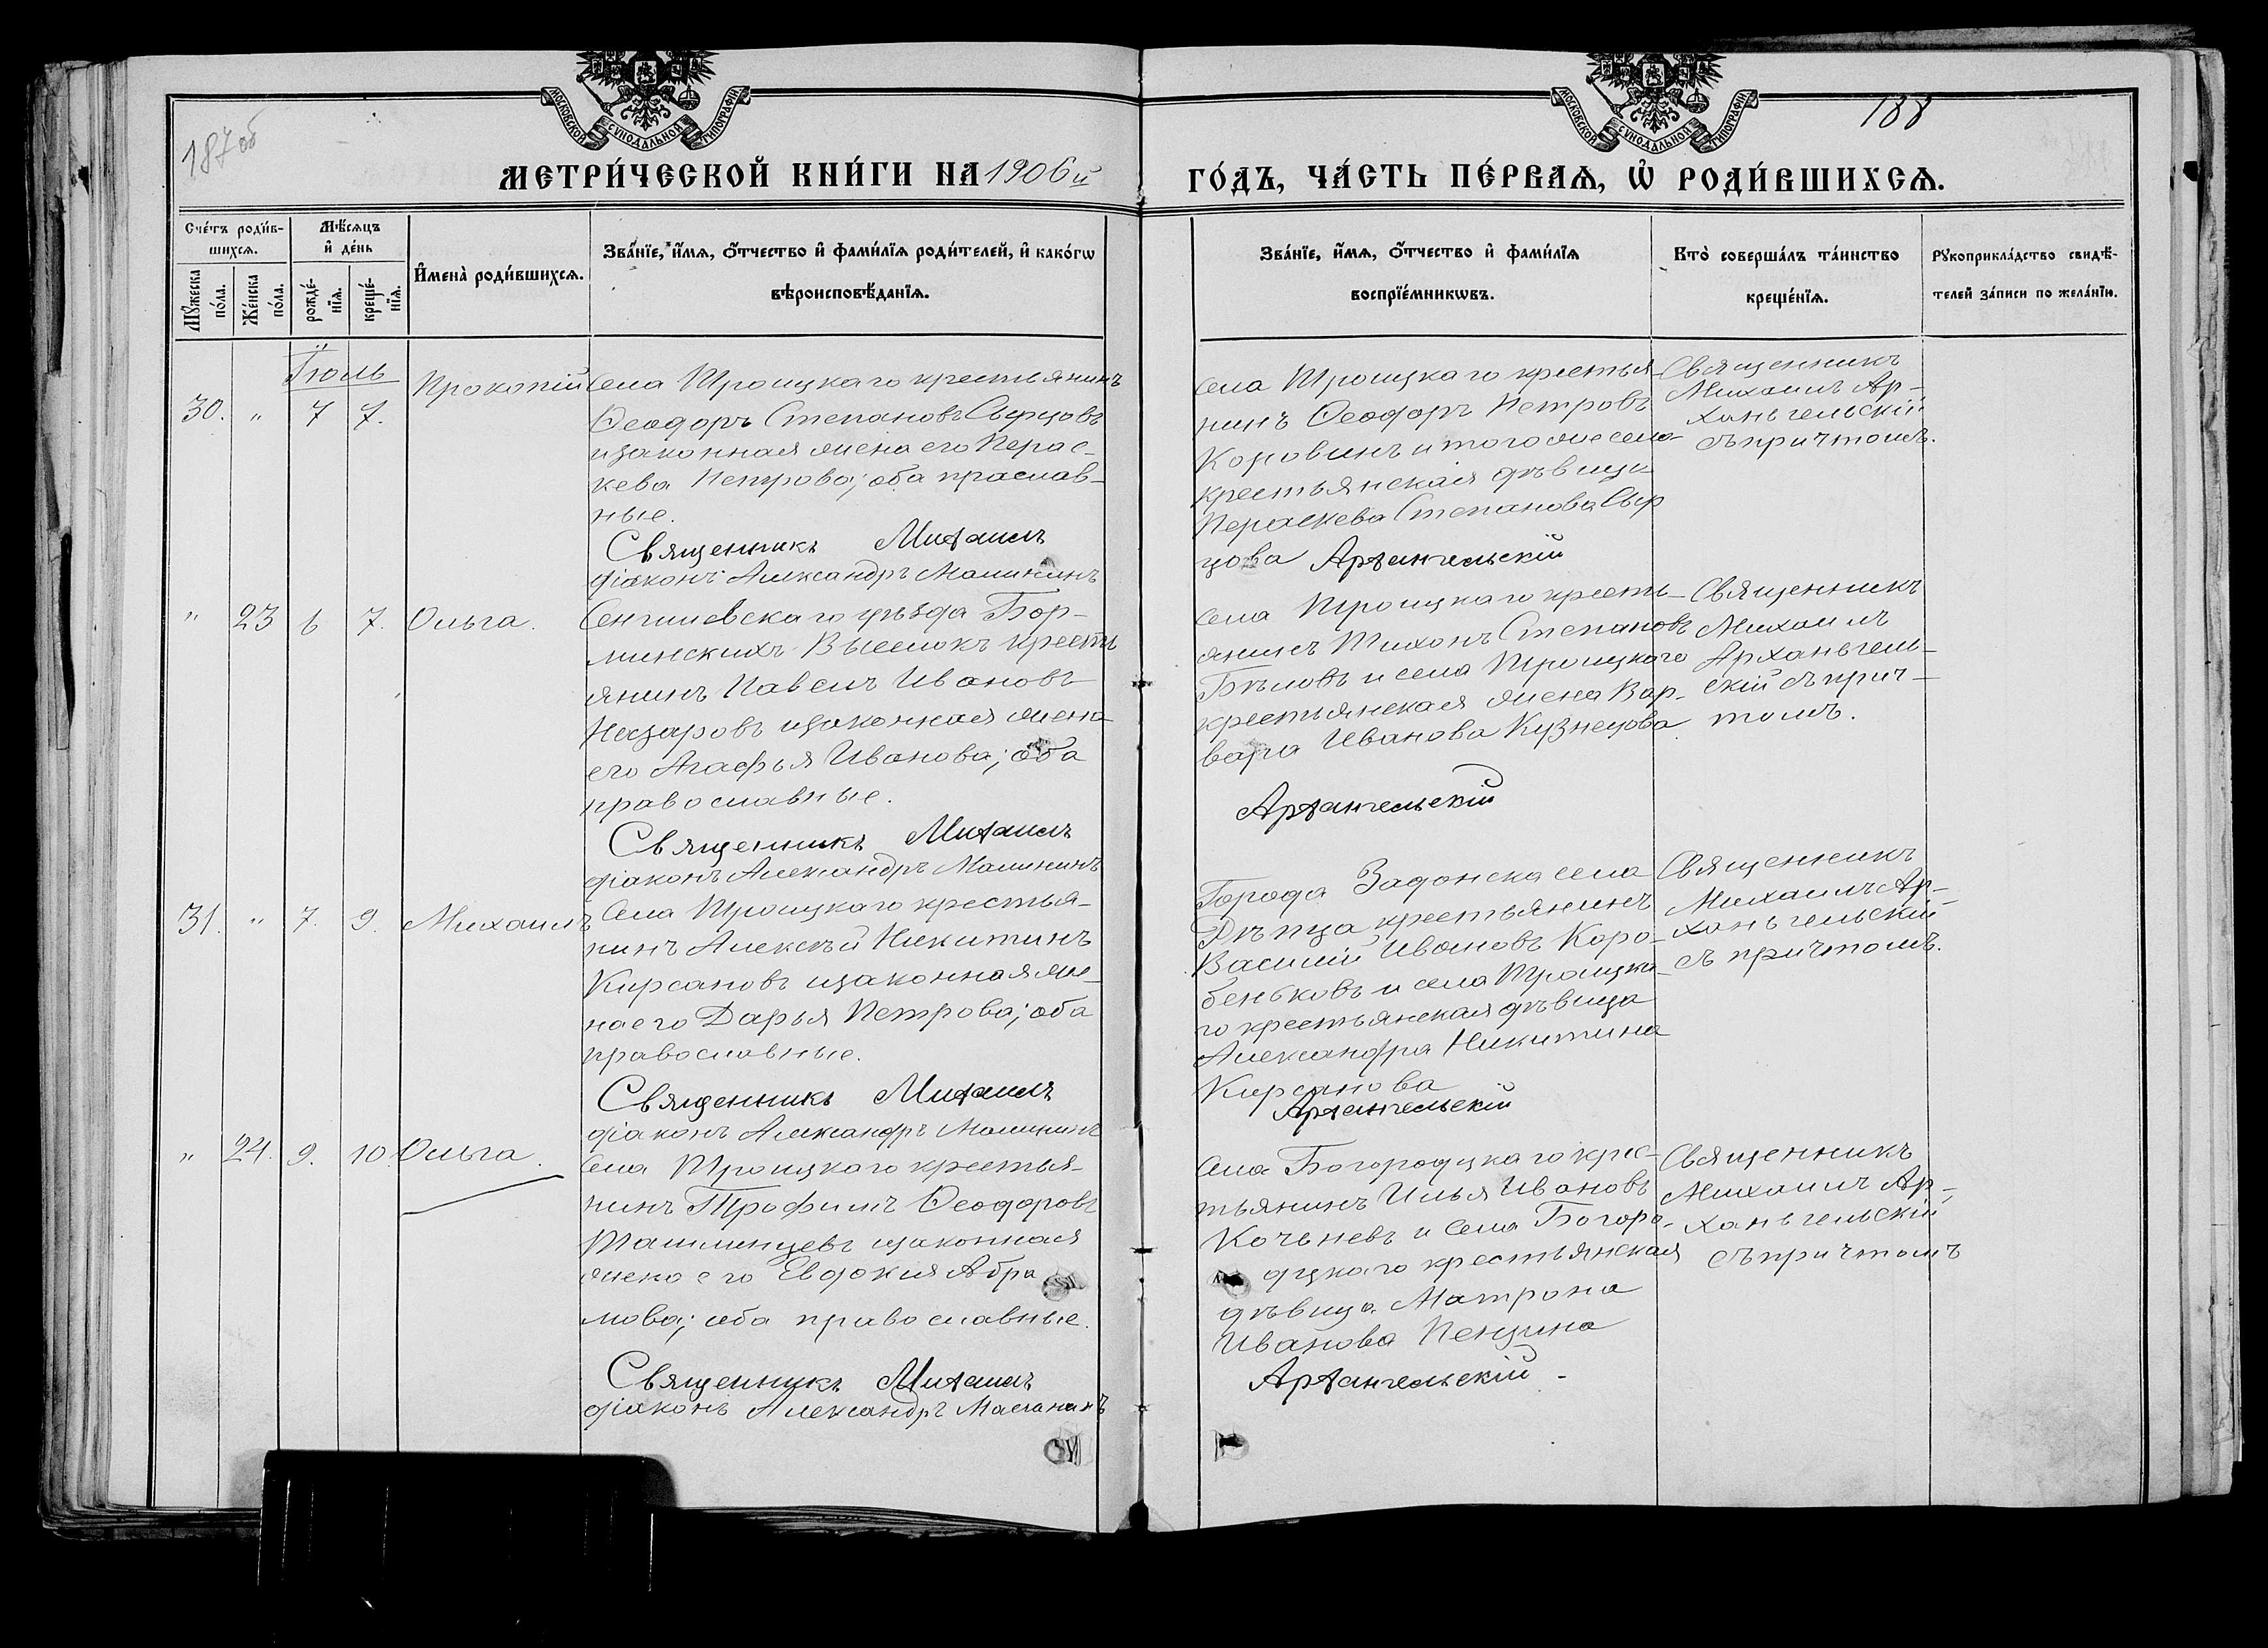 187об
188
МОСКОВСКОЙ СѴНОДАЛЬНОЙ ТИПОГРАФІИ
МОСКОВСКОЙ СѴНОДАЛЬНОЙ ТИПОГРАФІИ
МЕТРИ́ЧЕСКОЙ КНИ́ГИ НА 1906й
ГО́ДЪ, ЧА́СТЬ ПЕ́РВАѦ, Ѡ҆ РОДИ́ВШИХСѦ.
Сче́тъ роди́в-
шихсѧ.
Мꙋ́жеска по́ла.
Же́нска по́ла.
Мѣ́сѧцъ
и҆ де́нь
рожде́-
нїѧ.
креще́-
нїѧ.
И҆мена̀ роди́вшихсѧ.
Зва́нїе, и҆́мѧ, ѻ҆́тчество и҆ фами́лїѧ роди́телей, и҆ како́гѡ
вѣроисповѣ́данїѧ.
Зва́нїе, и҆́мѧ, ѻ҆́тчество и҆ фами́лїѧ
воспрїе́мникѡвъ.
Кто̀ соверша́лъ та́инство
креще́нїѧ.
Рꙋкоприкла́дство свидѣ́-
телей за́писи по жела́нїю.
Іюль
30. " 7 7. Прокопій
Села Троицкаго крестьянинъ
Ѳеодоръ Степановъ Сырцовъ
и законная жена его Перас-
кева Петрова; оба праслав-
ные.
Священникъ Михаилъ
діаконъ Александръ Малининъ
Села Троицкаго крестья-
нинъ Ѳеодоръ Петровъ
Коровинъ и того же села
крестьянская дѣвица
Параскева Степанова Сыр
цова Архангельскій
Священникъ
Михаилъ Ар-
хангельскій
съ причтомъ.
" 23 6 7. Ольга.
Сенгилевскаго уѣзда Бор-
минскихъ Выселокъ кресть
янинъ Павелъ Ивановъ
Назаровъ и законная жена
его Агафья Иванова; оба
православные.
Священникъ Михаилъ
діаконъ Александръ Малининъ
Села Троицкаго кресть-
янинъ Тихонъ Степановъ
Бѣловъ и села Троицкаго
крестьянская жена Вар-
вара Иванова Кузнецова.
Архангельскій
Священникъ
Михаилъ
Архангель-
скій съ прич-
томъ.
31. " 7. 9. Михаилъ
Села Троицкаго крестья-
нинъ Алексѣй Никитинъ
Кирсановъ и законная же-
на его Дарья Петрова; оба
православные.
Священникъ Михаилъ
діаконъ Александръ Малининъ
Города Задонска села
Рѣпца крестьянинъ
Василій Ивановъ Коро-
беньковъ и села Троицка-
го крестьянская дѣвица
Александра Никитина
Кирсанова
Архангельскій
Священникъ
Михаилъ Ар-
хангельскій
съ причтомъ.
" 24. 9. 10 Ольга.
Села Троицкаго крестья-
нинъ Трофимъ Ѳеодоровъ
Ташлинцевъ и законная
жена его Евдокия Абра
мова; оба православные.
Священникъ Михаилъ
діаконъ Александръ Малининъ
Села Богородцкаго крес-
тьянинъ Илья Ивановъ
Коченевъ и села Богоро-
дцкаго крестьянская
дѣвица Матрона
Иванова Пензина
Архангельскій
Священникъ
Михаилъ Ар-
хангельскій
съ причтомъ